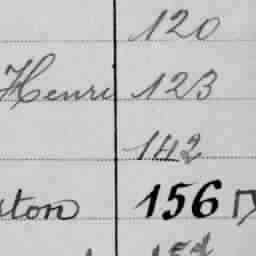 120
Henri 123
142
156